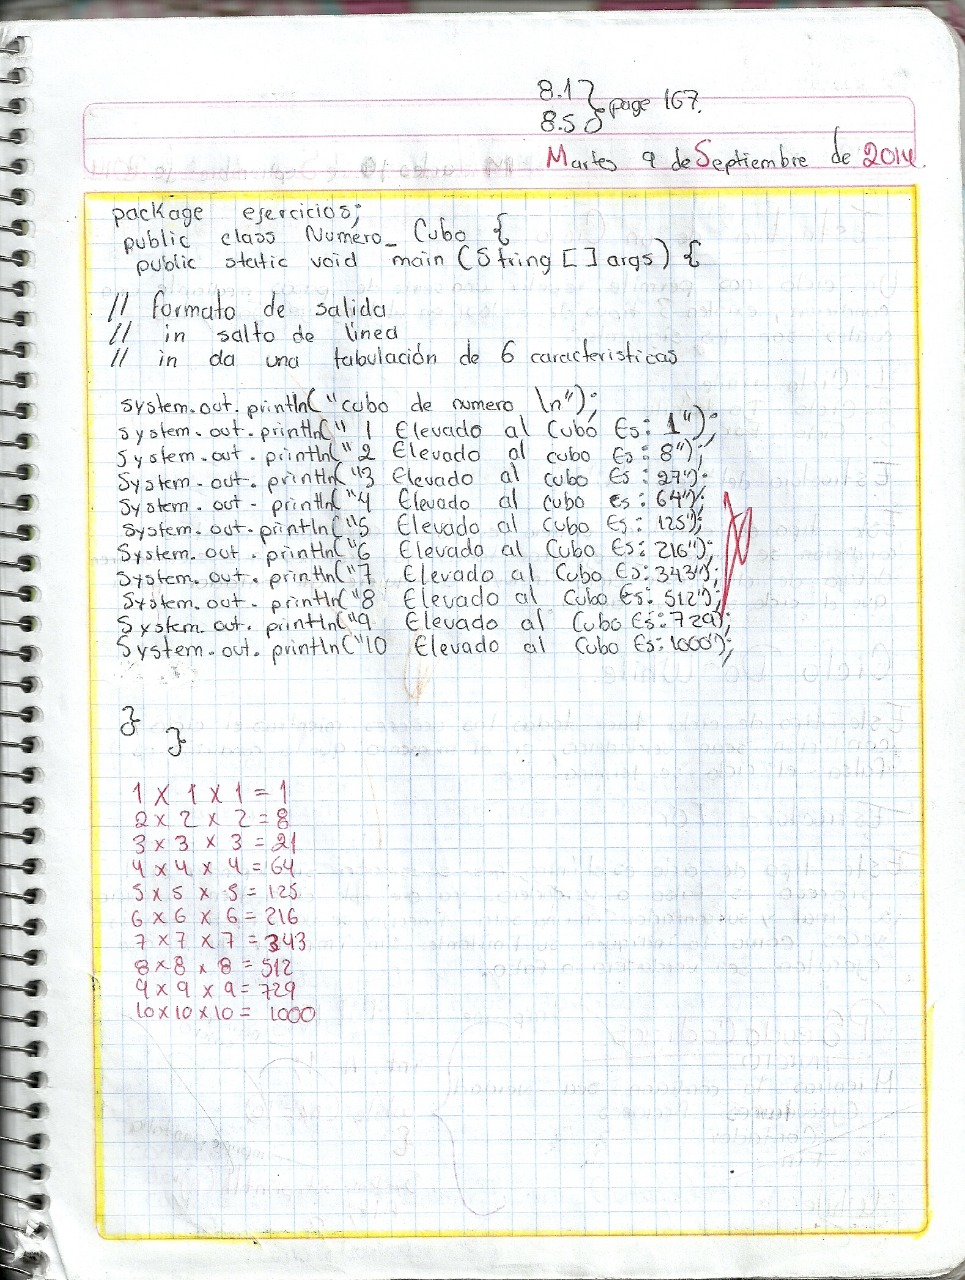 8.1
8.5 } page 167.
Martes 9 de Septiembre de 2014.
package ejercicios;
public class Numero_ Cubo {
public static void main (String [] args) {
// formato de salida
// in salto de linea
// in da una tabulación de 6 caracteristicas
system.out.println("cubo de numero \n");
system.out.println(" 1 Elevado al Cubo Es: 1");
System.out.println("2 Elevado al cubo Es: 8");
System.out.println("3 Elevado al cubo Es: 27");
System.out.println("4 Elevado al cubo es: 64");
System.out.println("5 Elevado al Cubo Es: 125");
System.out.println("6 Elevado al Cubo Es: 216");
System.out.println("7 Elevado al Cubo Es: 343");
System.out.println("8 Elevado al Cubo Es: 512");
System.out.println("9 Elevado al Cubo Es: 729);
System.out.println("10 Elevado al Cubo Es: 1000");
}
}
1 x 1 x 1 = 1
2 x 2 x 2 = 8
3 x 3 x 3 = 21
4 x 4 x 4 = 64
5 x 5 x 5 = 125
6 x 6 x 6 = 216
7 x 7 x 7 = 343
8 x 8 x 8 = 512
9 x 9 x 9 = 729
10 x 10 x 10 = 1000